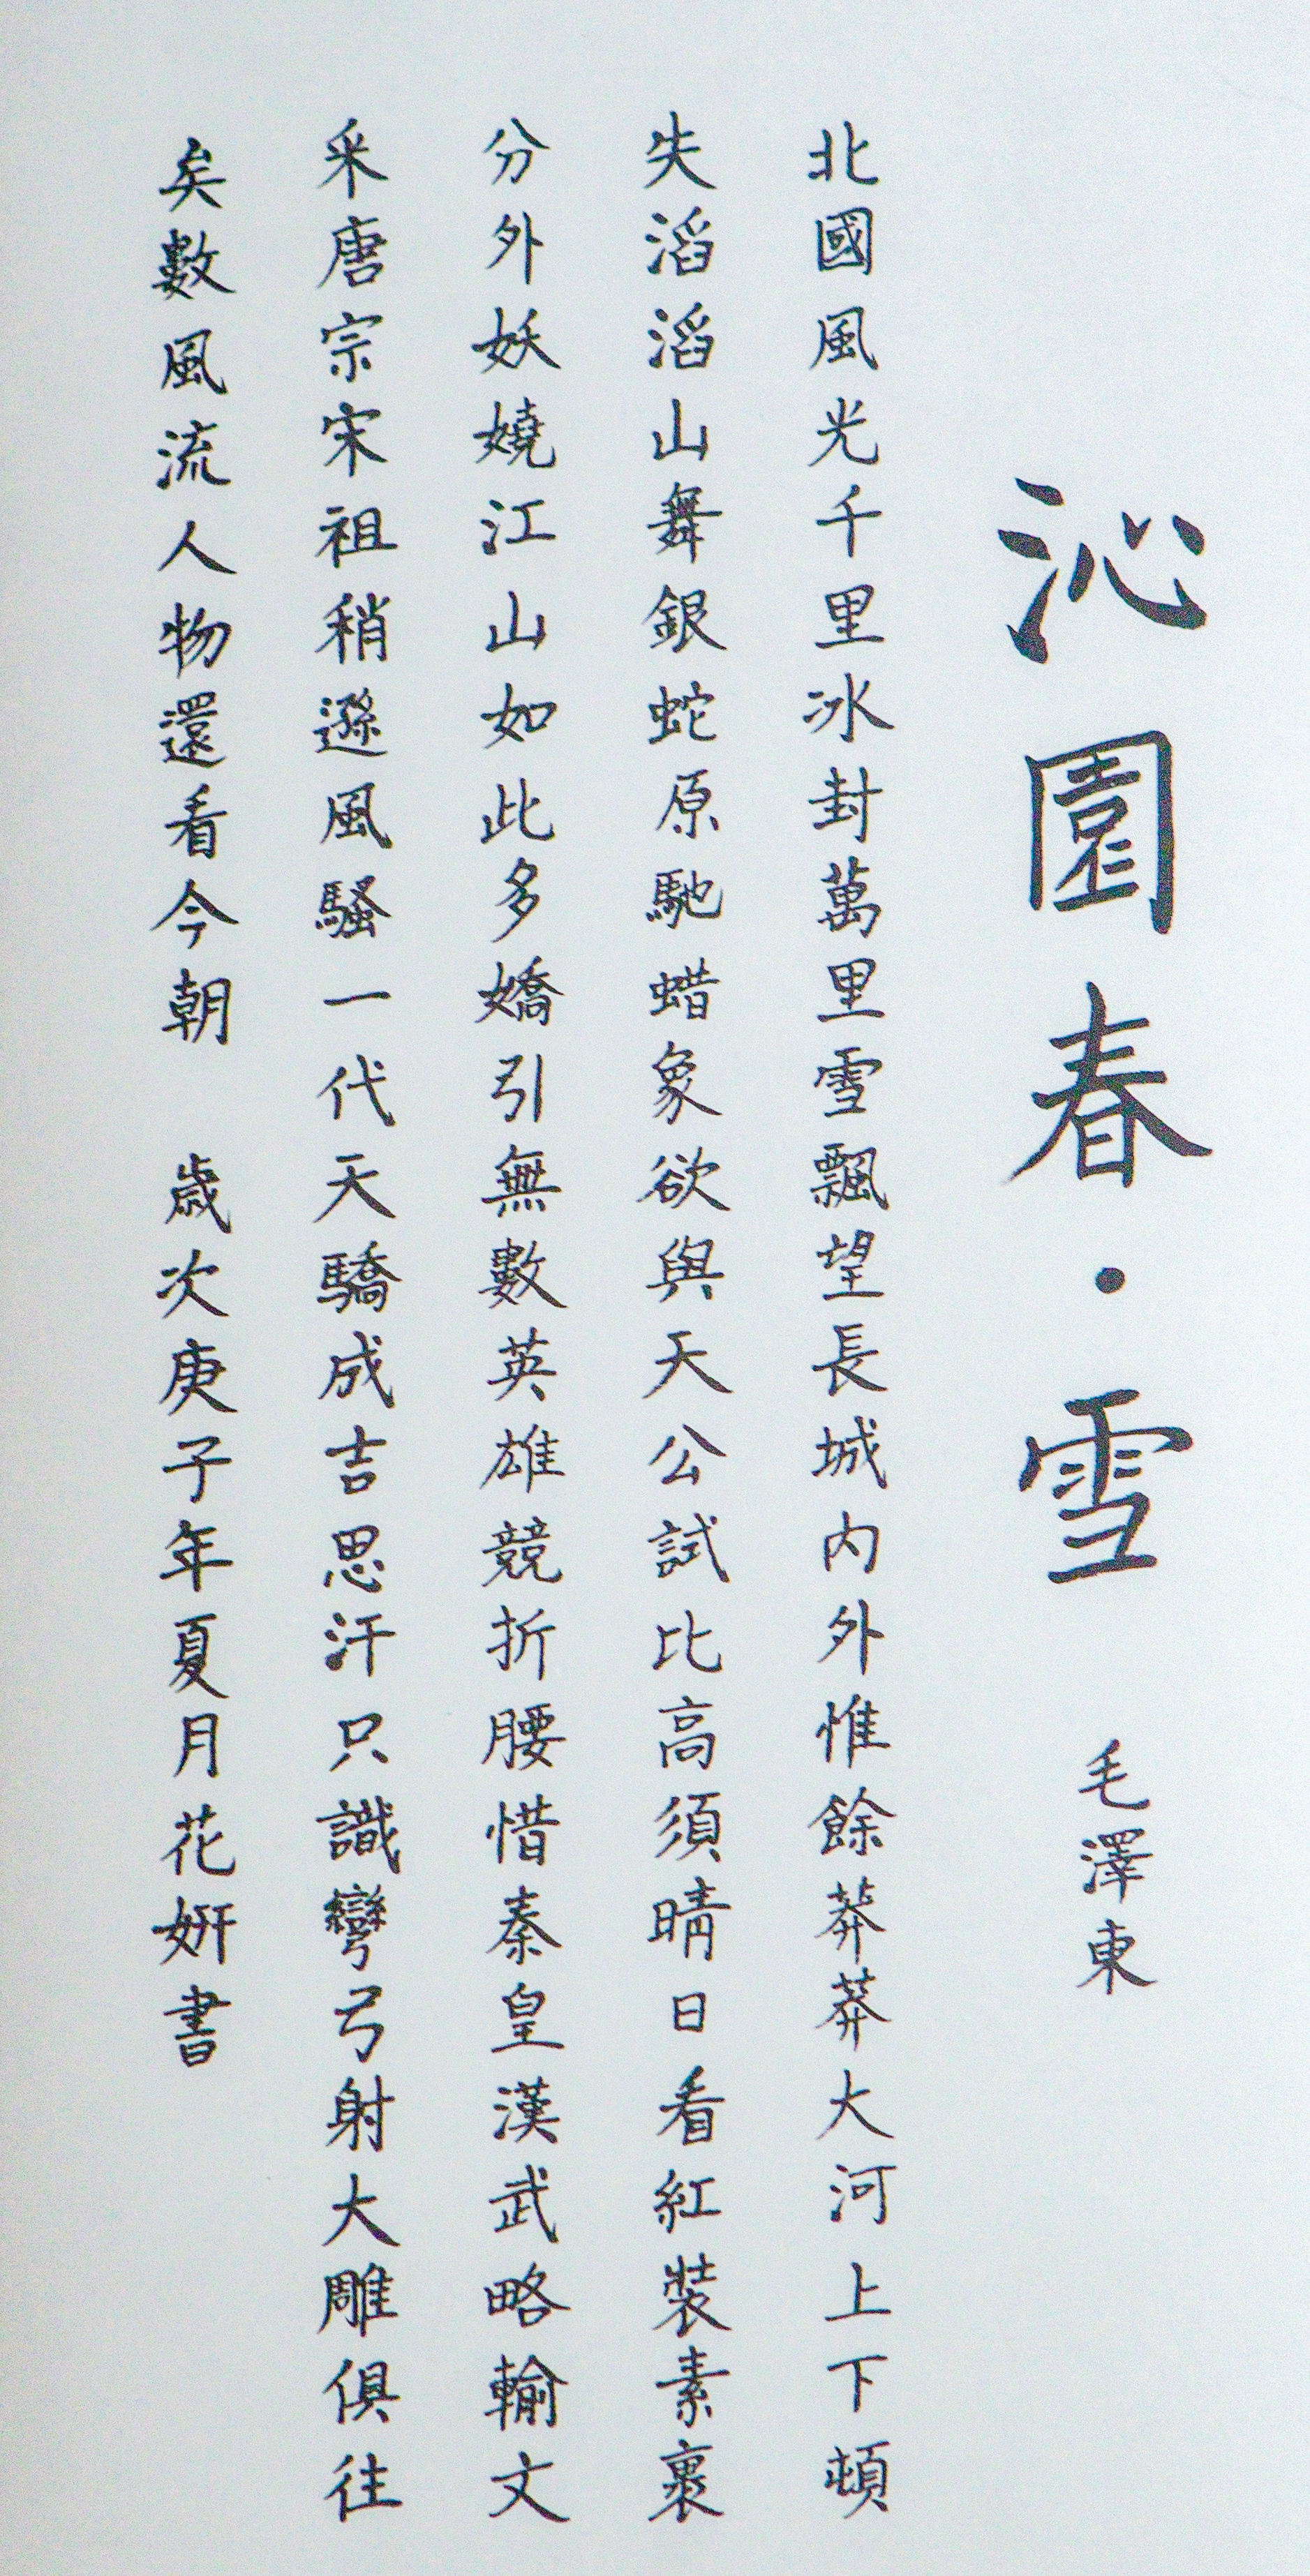 沁園春·雪 毛澤東
北國風光千里冰封萬里雪飄望長城内外惟餘莽莽大河上下頓
失滔滔山舞銀蛇原馳蜡象欲與天公試比高須晴日看紅裝素裹
分外妖嬈江山如此多嬌引無數英雄競折腰惜秦皇漢武略輸文
采唐宗宋祖稍遜風騷一代天驕成吉思汗只識彎弓射大雕俱往
矣數風流人物還看今朝 歲次庚子年夏月花妍書